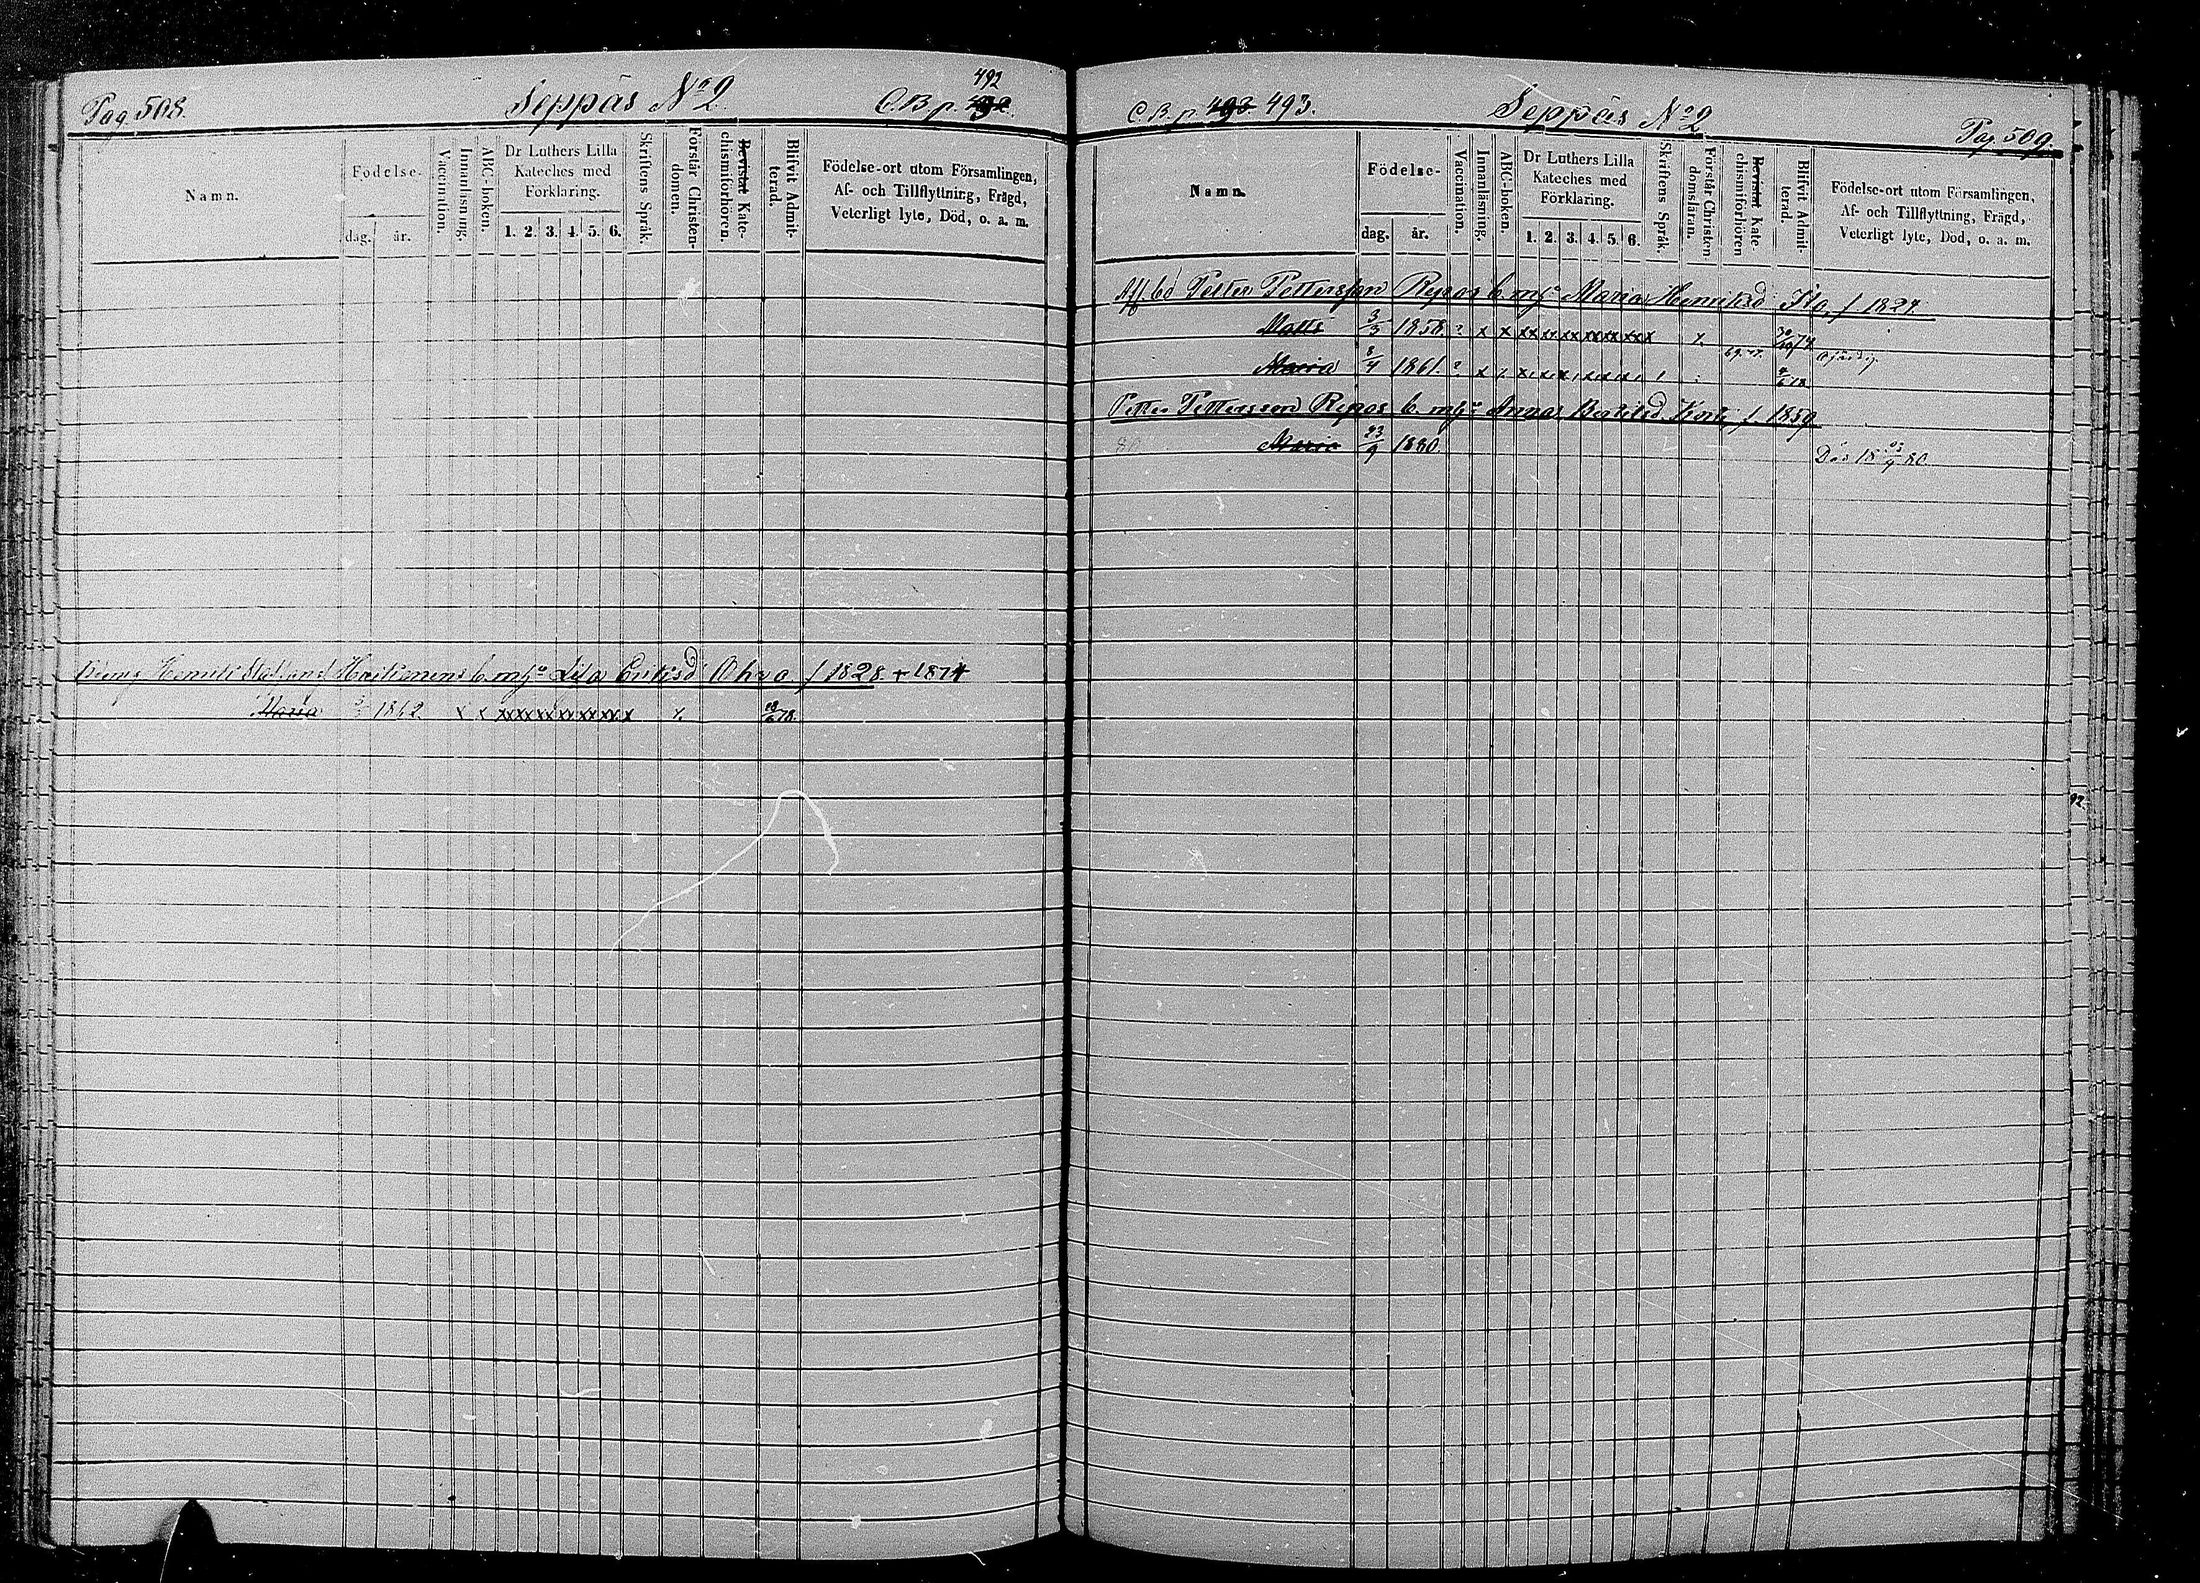 Pag 508. Seppäs No 2 C.B.p. 432. 492
Namn.
Födelse-
dag. år.
Vaccination.
Innanläsning.
ABC-boken.
Dr Luthers Lilla
Kateches med
Förklaring.
1. 2. 3. 4. 5. 6.
Skriftens Språk.
Förstår Christen-
domen.
Bevistat Kate-
chismiförhören.
Blifvit Admit-
terad.
Födelse-ort utom Församlingen,
Af- och Tillflyttning, Frägd,
Veterligt lyte, Död, o. a. m.
Henrik b. mhu Lisa Eriksd f 1828 + 1874
Maria 1862 x x xx xx xx xx xx xx x x 78.
C.B.p. 493. 493. Seppäs No 2 Pag. 509.
Namn.
Födelse-
dag. år.
Vaccination.
Innanläsning.
ABC-boken.
Dr Luthers Lilla
Kateches med
Förklaring.
1. 2. 3. 4. 5. 6.
Skriftens Språk.
Förstår Christen
domsläran.
Bevistat Kate-
chismiförhören
Blifvit Admit-
terad.
Födelse-ort utom Församlingen,
Af- och Tillflyttning, Frägd,
Veterligt lyte, Död, o. a. m.
Aff. bd Petter Pettersson Repos b. mhu Maria Henriksd f 1827
Matts 3/3 1858 ? x x xx xx xx xx xx xx x x 74
Maria 8/4 1861. ? x 78
Petter Pettersson Repos b. mhu Anna f. 1859
80 Maria 23/9 1880 Död 18 23/9 80
92